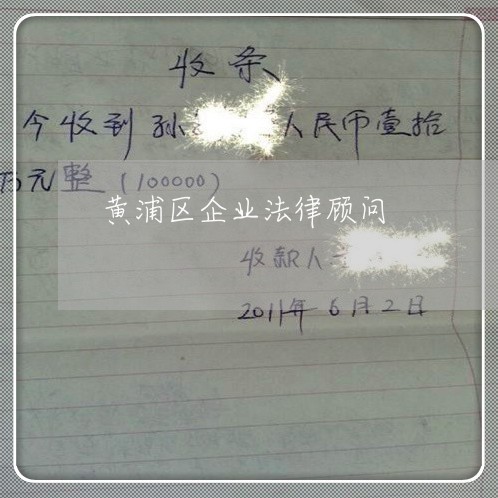 收条
今收到孙 人民币壹拾
万元整(100000)
黄浦区企业法律顾问
收款人
2011年6月2日